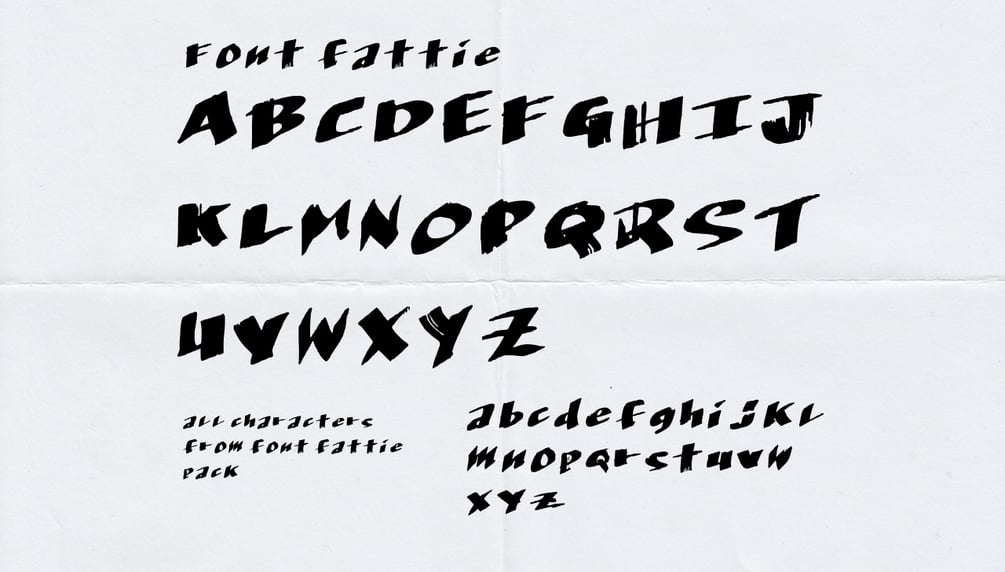 Font fattie
ABCDEFGHIJ
KLMNOPQRST
UVWXYZ
all characters
from font fattie
pack
abcdefghijkl
mnopqrstuvw
xyz